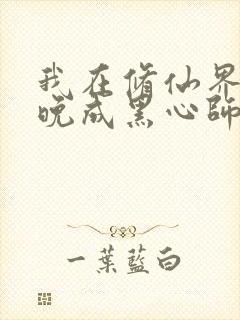 我在脩仙界
晚成黑心師
一葉藍白